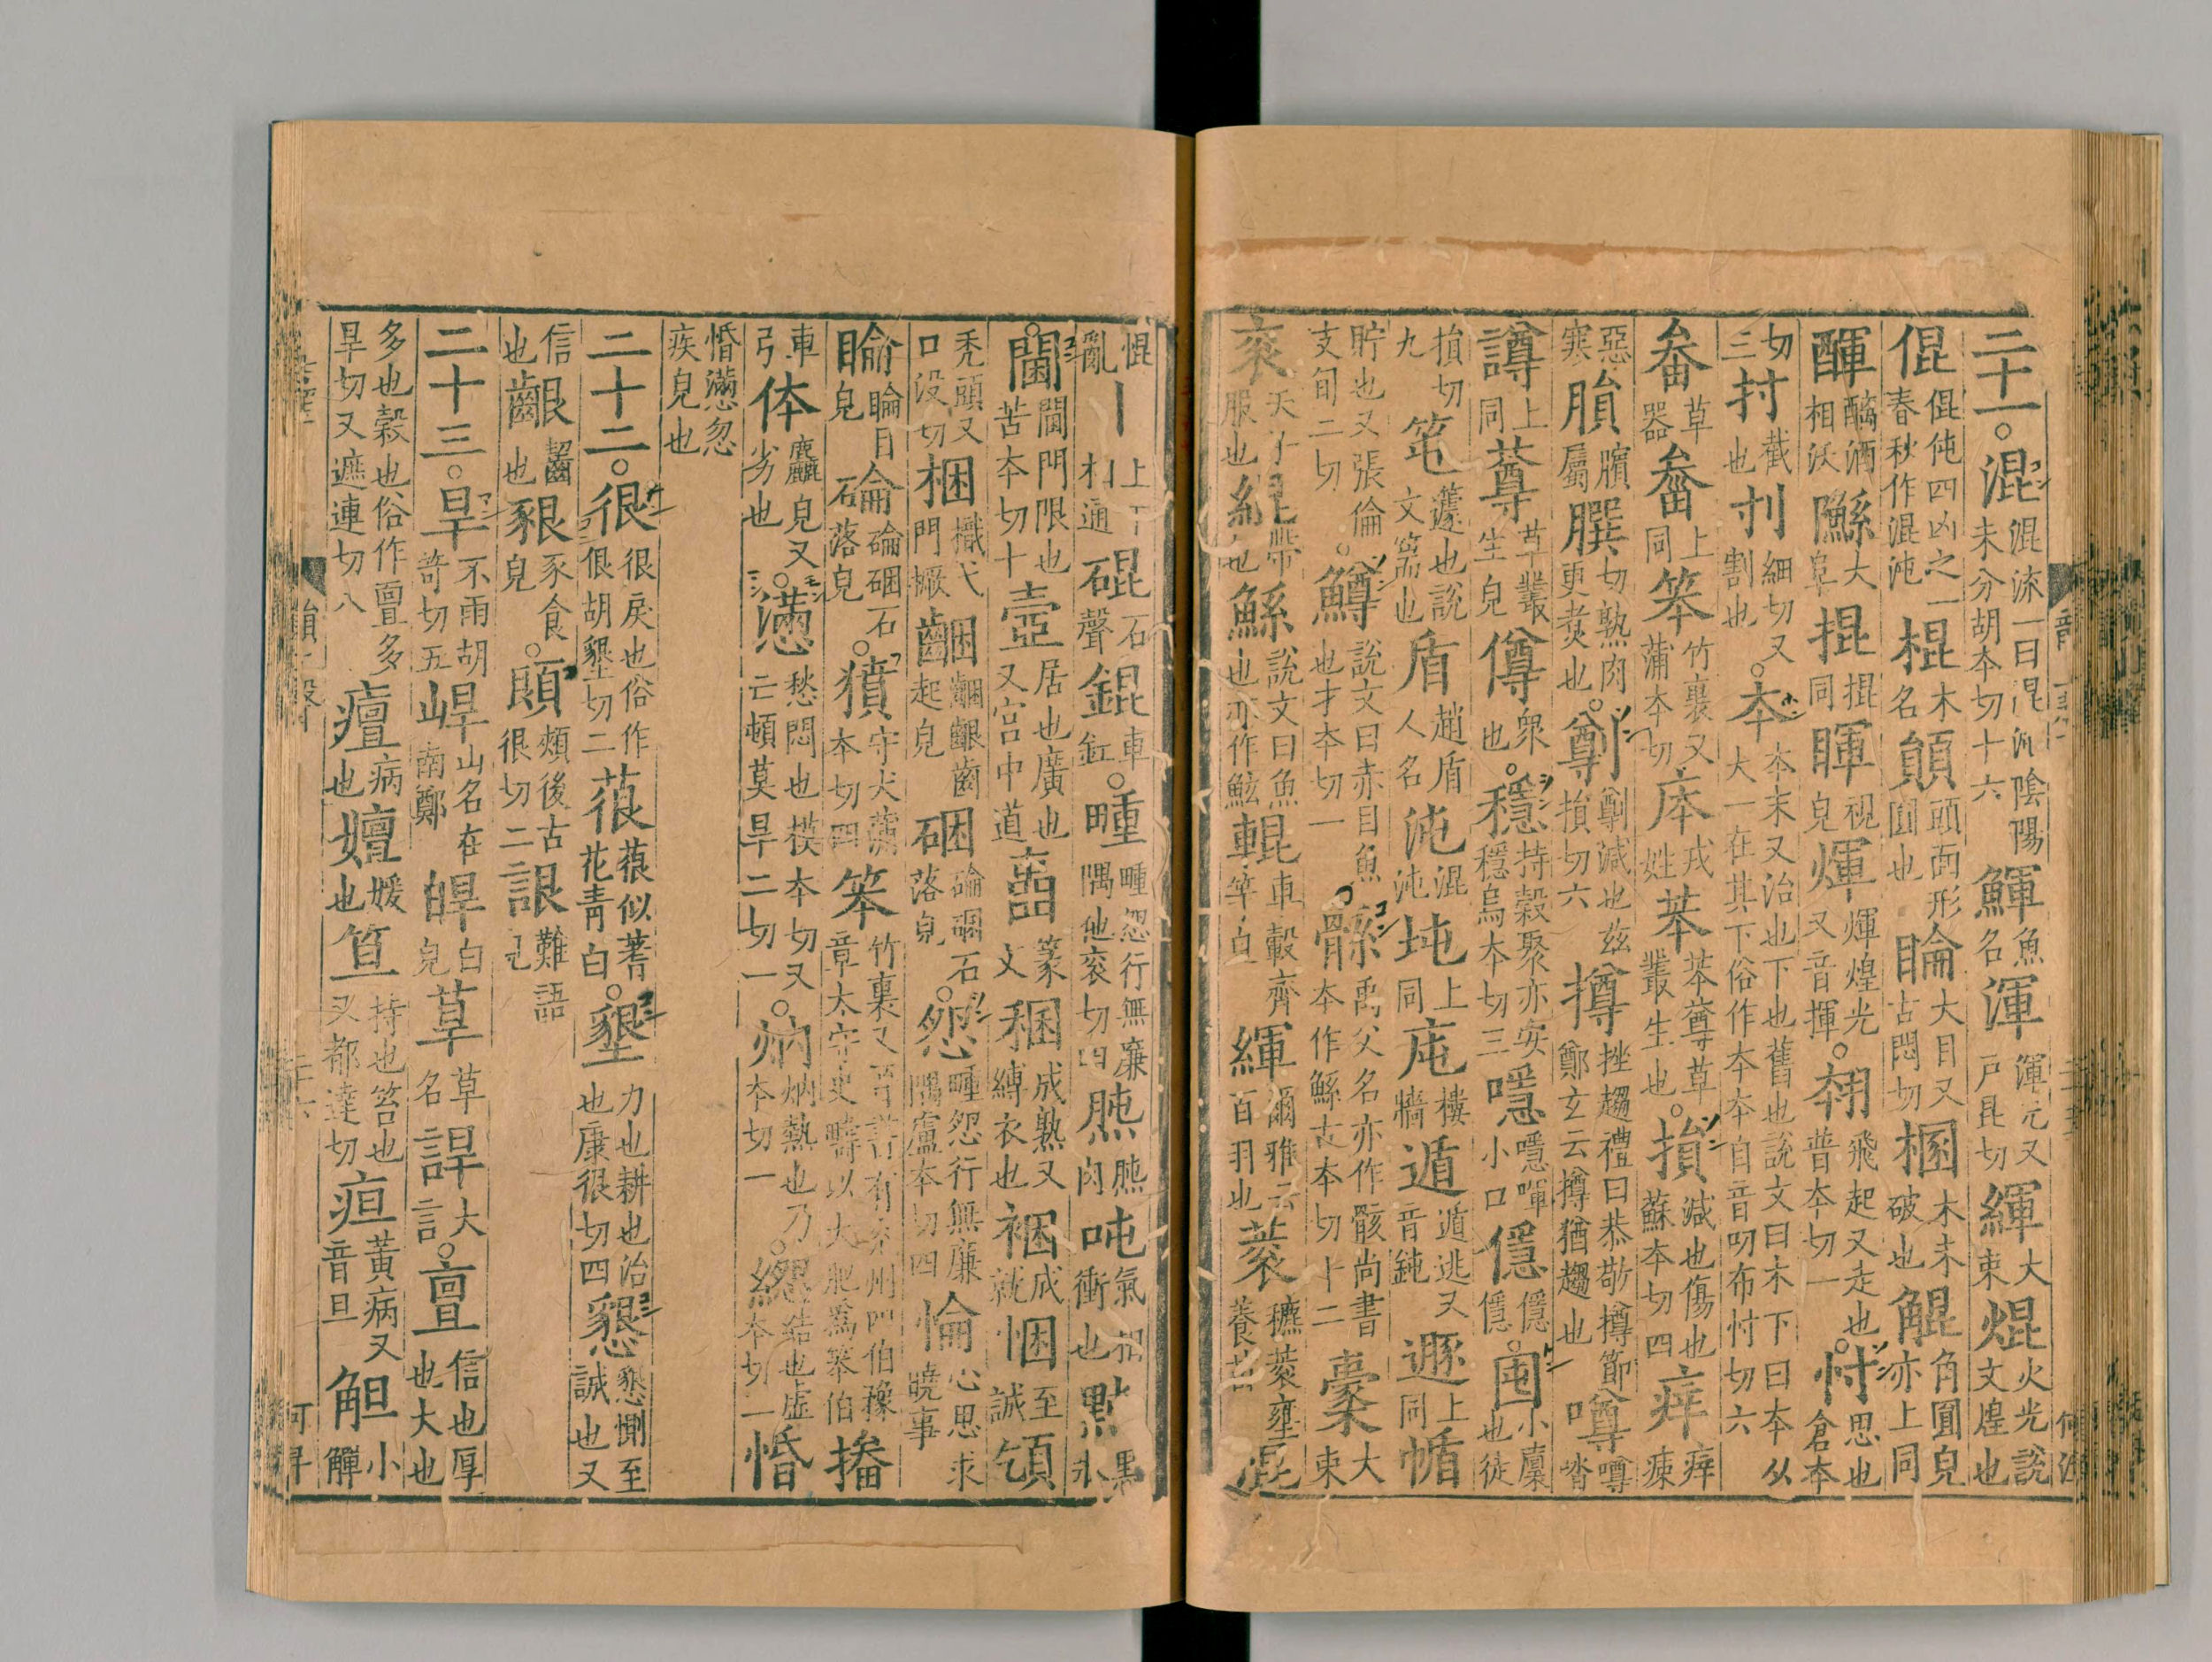 二十一。混混流一曰混沌陰陽未分胡本切十六鯶魚名渾渾元又戶昆切緷大束焜火光說文煌也
倱倱伅四凶之一春秋作混沌棍木名顐頭面形圓也睔大目又古悶切梱木未破也䚠角圓皃亦上同
醞酒相沃鯀大阜掍掍同睴視皃煇煇煌光又音揮。㧊飛起又走也普本切一忖思也倉本
切三刌截也刌細切又割也。本本末又治也下也舊也說文曰木下曰本从大一在其下俗作夲夲自音叨布忖切六
畚草器畚上同笨竹裏又蒲本切㡷戎姓苯苯䔿草叢生也。損減也傷也蘇本切四㾕㾕㾕
惡寒䐣䐣屬膞切熟肉更煑也。劕劕減也茲損切六撙挫趨禮曰恭敬撙節鄭玄云撙猶趨也噂噂㳫
譐上同䔿草叢生皃僔衆也。穩持穀聚亦安穩烏本切三㥯㥯喗小口㒚㒚㒚。囤小廩也徒
損切九笹籧也說文篅也盾趙盾人名沌混沌坉上同庉樓牆遁遁逃又音鈍遯上同㡒
貯也又張倫支旬二切。鱒說文曰赤目魚也才本切一。鯀禹父名亦作骸尚書本作鯀古本切十二㯻大束
衮天子服也緄帶也鯀說文曰魚也亦作鮌輥車轂齊等皃緷爾雅云百羽也蓘穮蓘壅養苗混
惃亂丨上下相通硍石聲錕車釭。畽畽怨行無廉隅他衮切四㬿㬿肉吨氣衝也㸃黑狀
閫閫門限也苦本切十壼居也廣也又宮中道𡈰篆文稇成熟又縛衣也裍成就悃至誠頎
禿頭又口没切梱橛弋門橛齫齫齦齒起皃硱碖硱石落皃。怨畽怨行無廉隅盧本切四惀心思求曉事
睔睔目皃碖碖硱石落皃。獖守犬蒲本切四笨竹裏又晉書有兗州四伯豫章太守史疇以大肥爲笨伯㩯
車弓体麤皃又劣也。懣愁悶也模本切又亡頓莫旱二切一。炳炳熱也乃本切一。緦緦結也虛本切二惛
惛懣忽疾皃也
二十二。很很戾也俗作佷胡墾切二䓳䓳似蓍花青白。墾力也耕也治也康很切四懇懇惻至誠也又
信也齦齧也豤豕食皃。頣頰後古很切二詪難語皃
二十三。旱不雨胡笴切五㟁山名在南鄭皔白皃草草名䛞大言。亶信也厚也大也
多也榖也俗作亶多旱切又遮連切八癉病也嬗媛也笪持也笞也又都達切疸黃病又音旦觛小觶